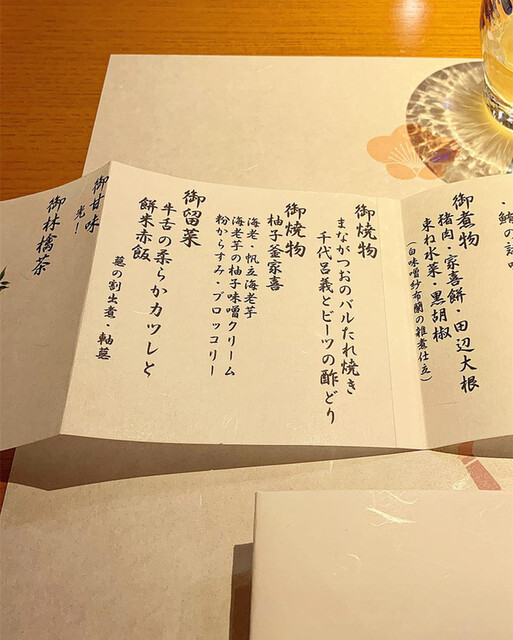 御煮物
猪肉・家喜餅・田辺大根
束ね水菜・黒胡椒
(白味噌紗布蘭の雑煮仕立)
御焼物
まながつおのバルたれ焼き
千代呂義とビーツの酢どり
御焼物
柚子釜家喜
海老・帆立海老芋
海老芋の柚子味噌クリーム
粉からすみ・ブロッコリー
御留菜
牛舌の柔らかカツレと
餅米赤飯
葱の割出煮・軸葱
御甘味
光!
御林檎茶